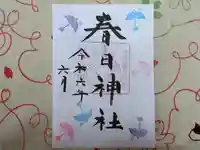 春日神社
令和六年
六月